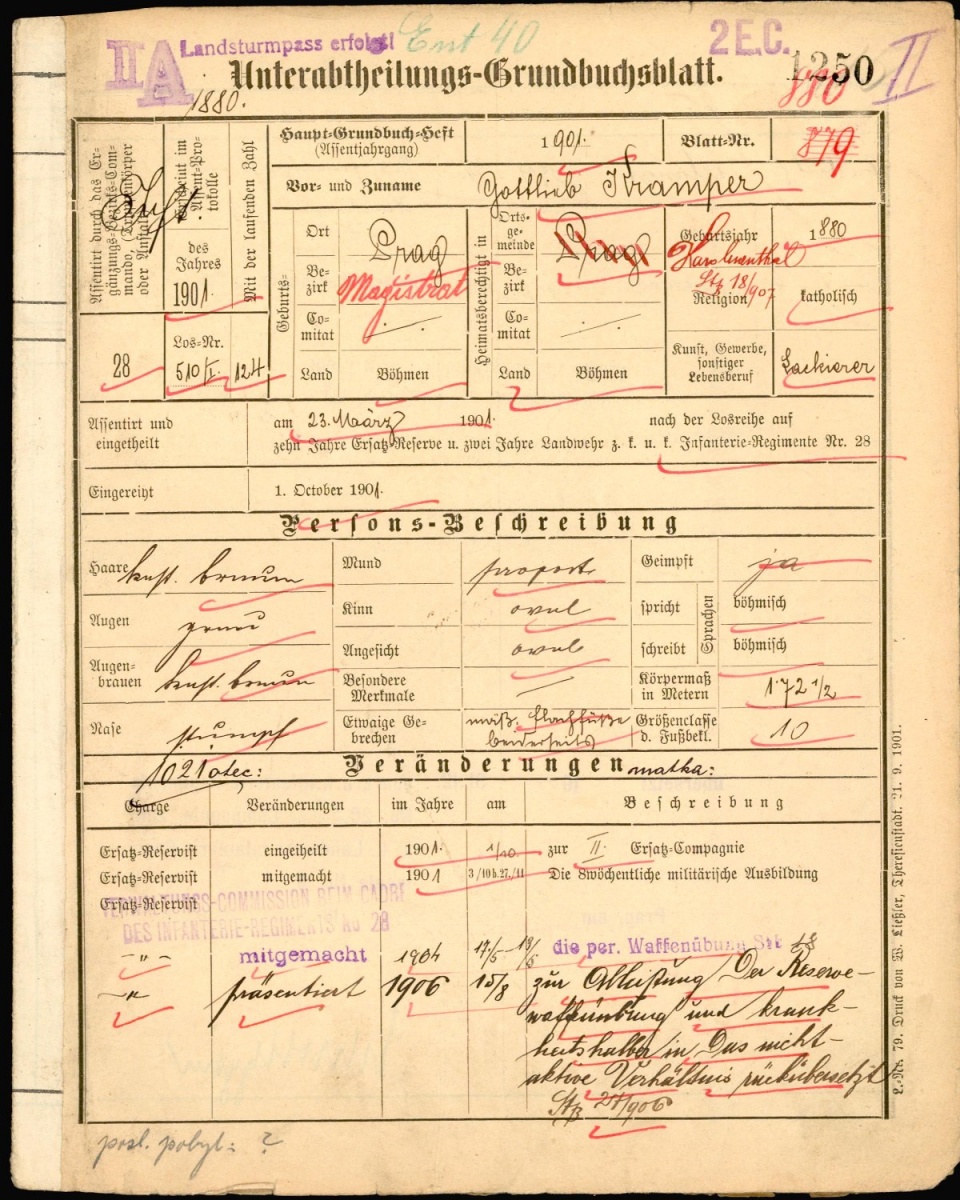 II A
Landsturmpass erfolgt!
Ent 40
2 E.C.
1250
880
II
Unterabtheilungs-Grundbuchsblatt.
1880.
Assentirt durch das Ergänzungs-Bezirks-Commando, (Truppenkörper oder Anstalt)
28
Erscheint im Assent-Protokolle
des Jahres
1901.
Mit der laufenden Zahl
Los-Nr.
510/I.
124
Haupt-Grundbuch-Heft
(Assentjahrgang)
1901.
Blatt-Nr.
879
Vor- und Zuname
Gottlieb Kramper
Geburts-
Ort
Prag
Bezirk
Magistrat
Comitat
Land
Böhmen
Heimatsberechtigt in
Ortsgemeinde
Prag
Bezirk
Comitat
Land
Böhmen
Karolinenthal
Stz 18/907
Geburtsjahr
1880
Religion
katholisch
Kunst, Gewerbe, sonstiger Lebensberuf
Lackierer
Assentirt und eingetheilt
am 23. März 1901. nach der Losreihe auf
zehn Jahre Ersatz-Reserve u. zwei Jahre Landwehr z. k. u. k. Infanterie-Regimente Nr. 28
Eingereiht
1. October 1901.
Persons-Beschreibung
Haare
kast. braun
Mund
proport.
Geimpft
ja
Augen
grau
Kinn
oval
spricht
Sprachen
böhmisch
Angesicht
oval
schreibt
böhmisch
Augenbrauen
kast. braun
Besondere Merkmale
Körpermaß in Metern
1·72 1/2
Nase
stumpf
Etwaige Gebrechen
mäß. Flachfüße
beiderseits
Größenclasse d. Fußbekl.
10
1021 otec:
Veränderungen
matka:
Charge
Veränderungen
im Jahre
am
Beschreibung
Ersatz-Reservist eingetheilt 1901. 1/10. zur II. Ersatz-Compagnie
Ersatz-Reservist mitgemacht 1901 3/10 b. 27./11 Die 8wöchentliche militärische Ausbildung
Ersatz-Reservist
VERWALTUNGS-COMMISSION BEIM CADRE
DES INFANTERIE-REGIMENTS No 28
-"- mitgemacht 1904 17/5 - 13/6 die per. Waffenübung Stt 18
-"- präsentiert 1906 15/8 zur Ableistung Der Reserve-
waffenübung und krank-
heitshalber in Das nicht-
aktive Verhältnis rückübersetzt
Stz 27/906
L.-Nr. 79. Druck von W. Ließler, Theresienstadt. 21. 9. 1901.
posl. pobyt: ?